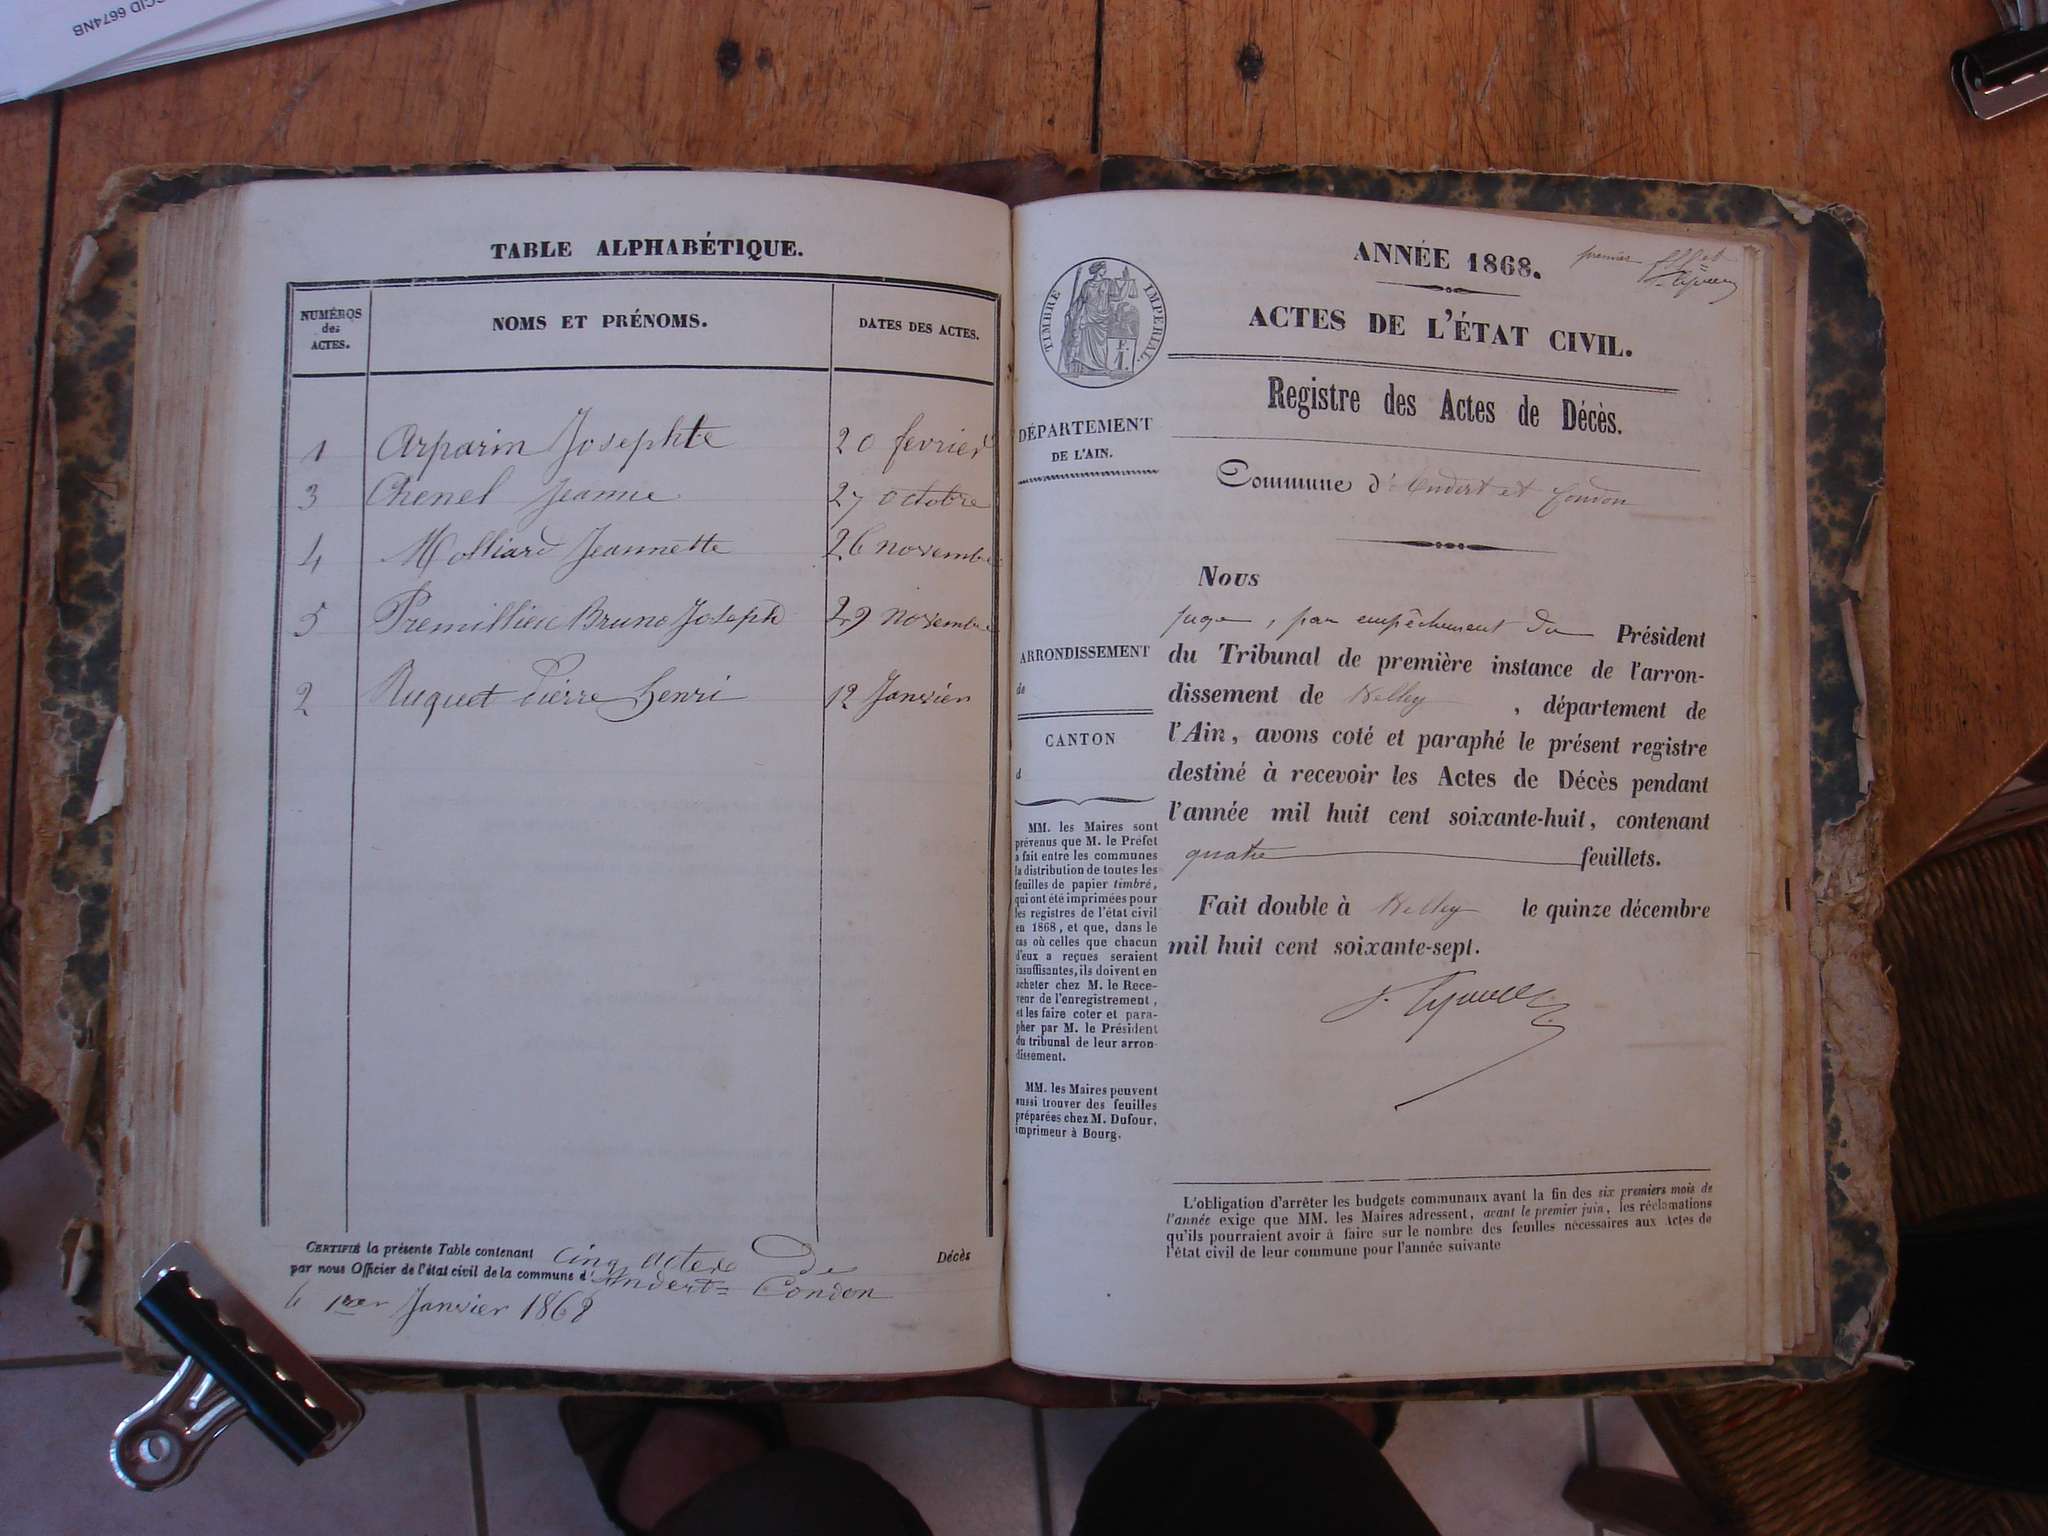 CCID 6674NB
TABLE ALPHABÉTIQUE.
NUMÉROS des ACTES. NOMS ET PRÉNOMS. DATES DES ACTES.
1 Arparin Josephte 20 fevrier
3 Chenel Jeanne 27 octobre
4 Molliard Jeannette 26 novembre
5 Premillieu Bruno Joseph 29 novembre
2 Ruquet Pierre Henri 12 Janvier
CERTIFIÉ la présente Table contenant cinq actes de Décès
par nous Officier de l'état civil de la commune d'Andert=Condon
le 1er Janvier 1868
premier
ANNÉE 1868.
TIMBRE IMPÉRIAL.
ACTES DE L'ÉTAT CIVIL.
Registre des Actes de Décès.
DÉPARTEMENT
DE L'AIN.
Commune d'Andert et Condon
ARRONDISSEMENT
de
CANTON
d
MM. les Maires sont
prévenus que M. le Préfet
a fait entre les communes
la distribution de toutes les
feuilles de papier timbré,
qui ont été imprimées pour
les registres de l'état civil
en 1868, et que, dans le
cas où celles que chacun
d'eux a reçues seraient
insuffisantes, ils doivent en
acheter chez M. le Rece-
veur de l'enregistrement,
et les faire coter et para-
pher par M. le Président
du tribunal de leur arron-
dissement.
MM. les Maires peuvent
aussi trouver des feuilles
préparées chez M. Dufour,
imprimeur à Bourg.
Nous
juge, par empêchement du Président
du Tribunal de première instance de l'arron-
dissement de Belley, département de
l'Ain, avons coté et paraphé le présent registre
destiné à recevoir les Actes de Décès pendant
l'année mil huit cent soixante-huit, contenant
quatre feuillets.
Fait double à Belley le quinze décembre
mil huit cent soixante-sept.
L'obligation d'arrêter les budgets communaux avant la fin des six premiers mois de
l'année exige que MM. les Maires adressent, avant le premier juin, les réclamations
qu'ils pourraient avoir à faire sur le nombre des feuilles nécessaires aux Actes de
l'état civil de leur commune pour l'année suivante